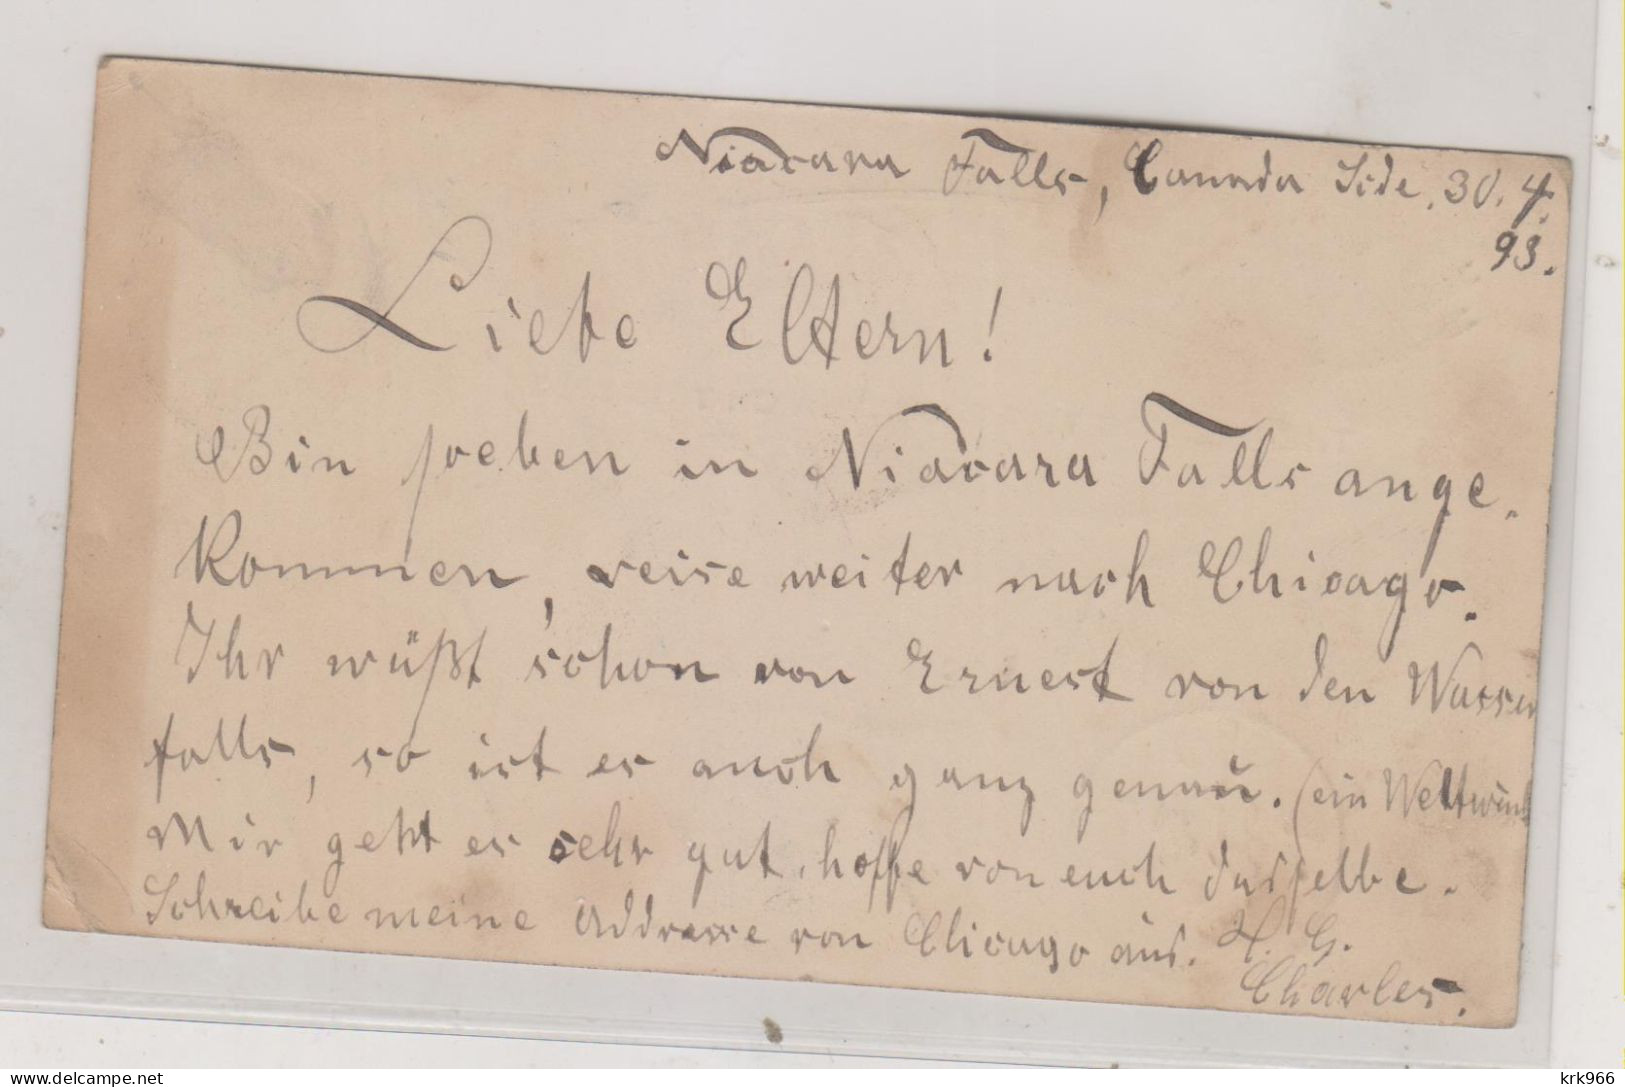 Niacara Falls, Canada Side. 30. 4.
93.
Liebe Eltern!
Bin soeben in Niacara Falls ange-
kommen, reise weiter nach Chicago.
Ihr wüßt schon von Ernest von den Wasser
falls, so ist es auch ganz genau. (ein Weltwund
Mir geht es sehr gut, hoffe von euch dasselbe.
Schreibe meine Addresse von Chicago aus. H. G.
Charles.
krk966